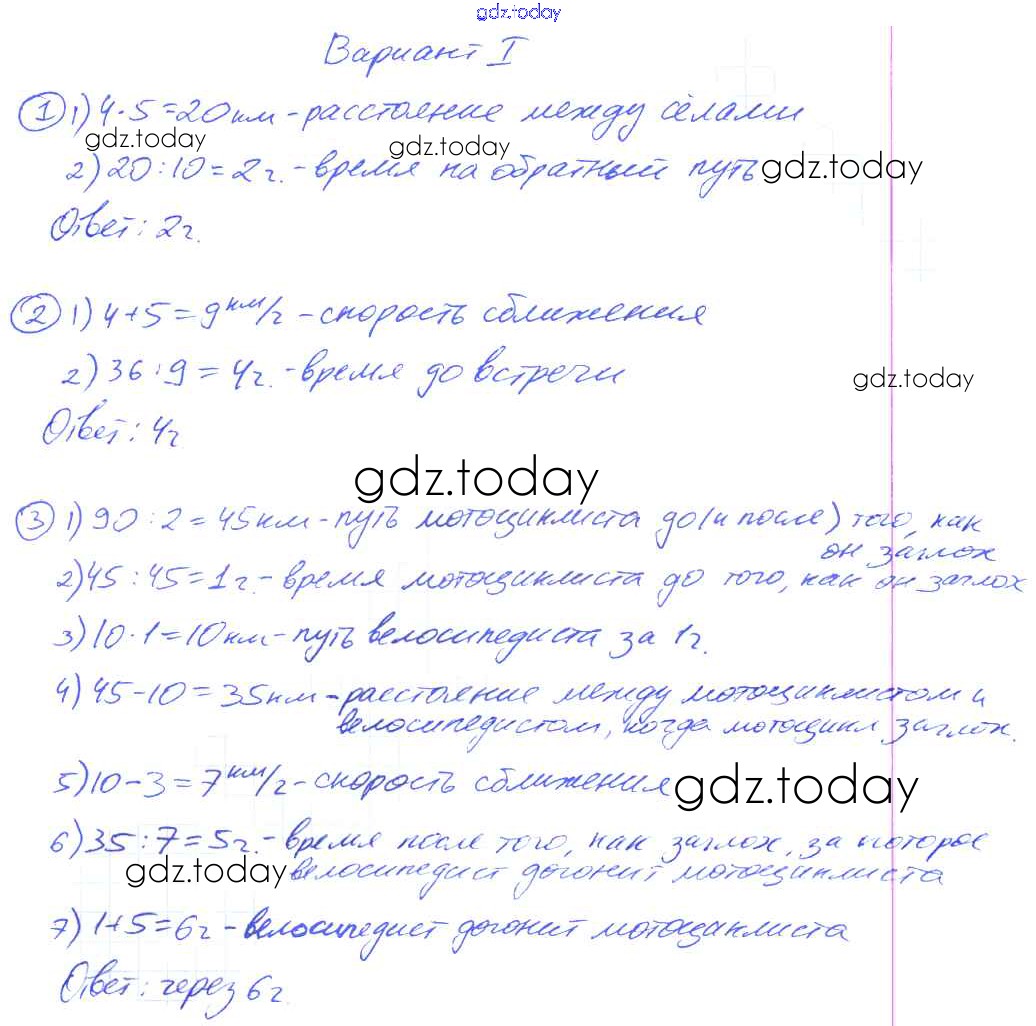 gdz.today
Вариант I
① 1) 4·5=20км-расстояние между сёлами
gdz.today gdz.today
2) 20:10=2ч.-время на обратный путь gdz.today
Ответ: 2ч.
② 1) 4+5=9км/ч-скорость сближения
2) 36:9=4ч.-время до встречи
gdz.today
Ответ: 4ч
gdz.today
③ 1) 90:2=45км-путь мотоциклиста до(и после) того, как
он заглох
2) 45:45=1ч.-время мотоциклиста до того, как он заглох
3) 10·1=10км-путь велосипедиста за 1ч.
4) 45-10=35км-расстояние между мотоциклистом и
велосипедистом, когда мотоцикл заглох.
5) 10-3=7км/ч-скорость сближения gdz.today
6) 35:7=5ч.-время после того, как заглох, за которое
gdz.today велосипедист догонит мотоциклиста
7) 1+5=6ч-велосипедист догонит мотоциклиста
Ответ: через 6ч.